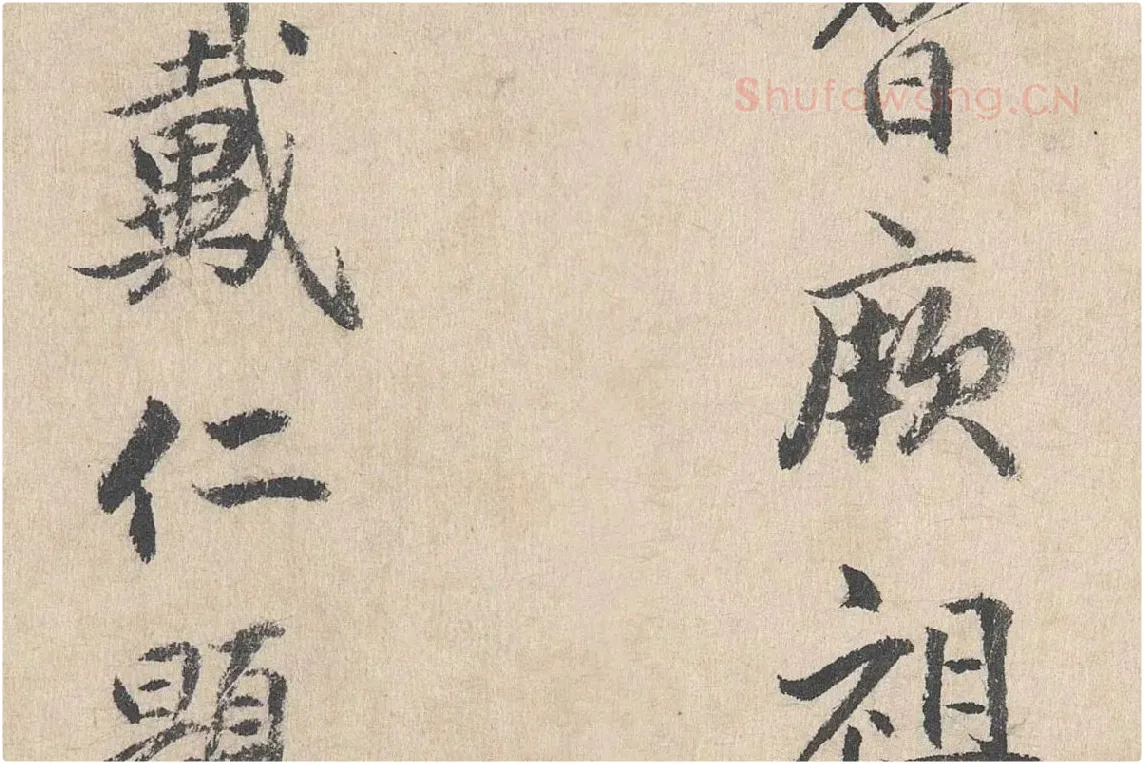 厥祖
戴仁
Shufawang.CN